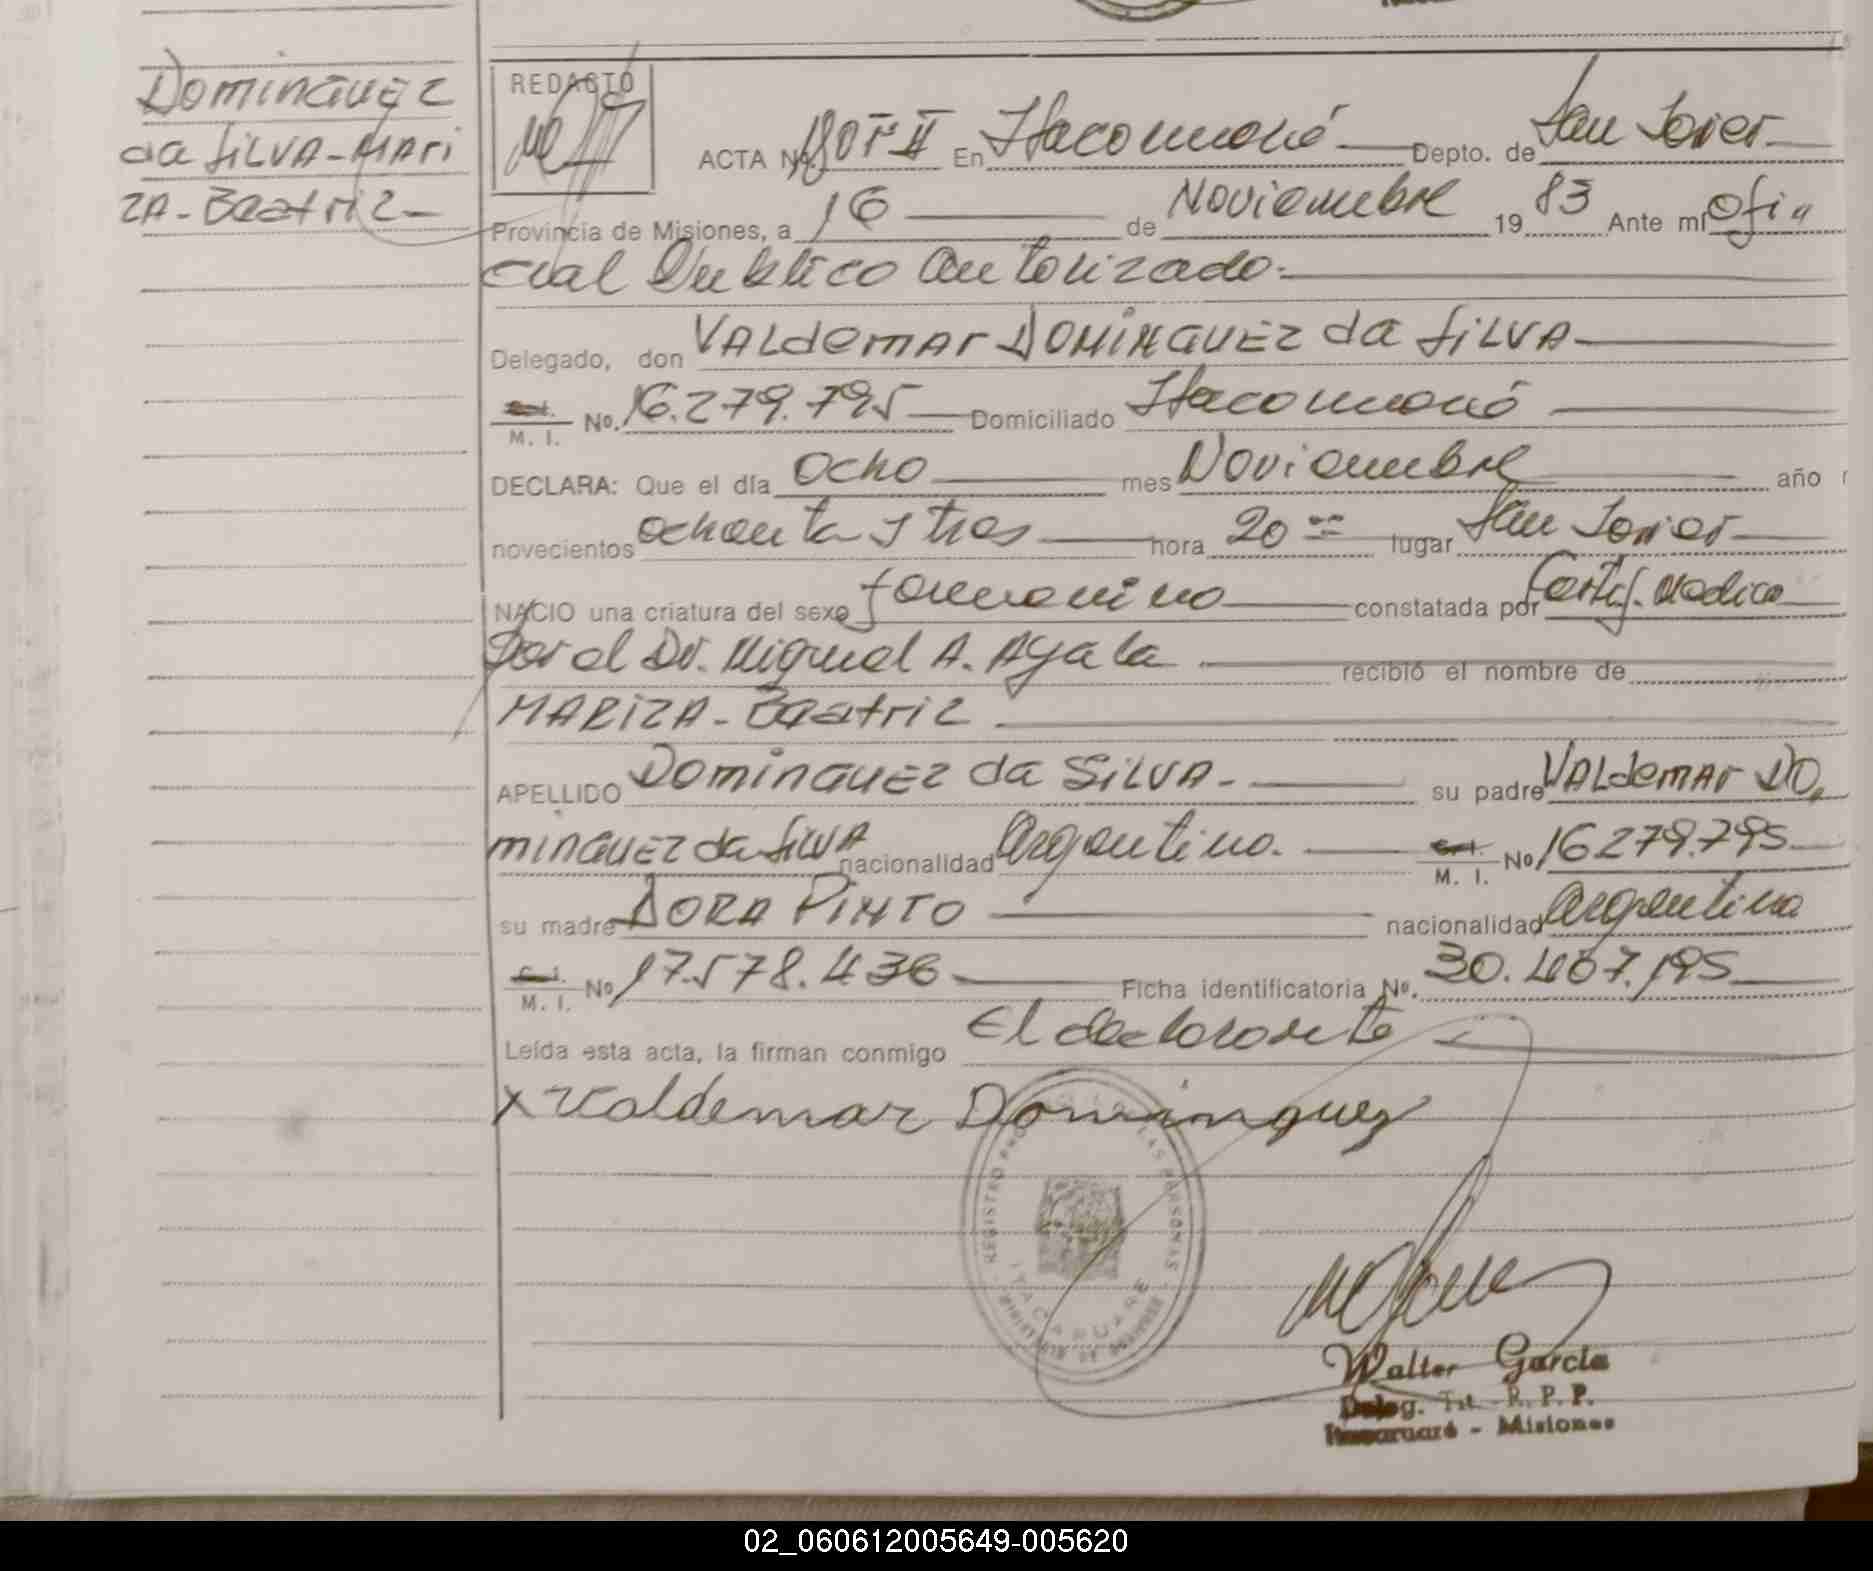 Dominguez
da SILVA-MARI
ZA-Beatriz-
REDACTÓ
ACTA No. 180 T° II En Itacaruaré Depto. de San Javier
Provincia de Misiones, a 16 de Noviembre 19 83 Ante mí Ofi
cial Publico Autorizado.
Delegado, don VALdemar DOMINGUEZ da SILVA
M. I. No. 16.279.795 Domiciliado Itacaruaré
DECLARA: Que el día ocho mes Noviembre año
novecientos ochenta y tres hora 20 lugar San Javier
NACIO una criatura del sexo femenino constatada por Certif. Medico
por el Dr. Miguel A. Ayala recibió el nombre de
MARIZA-Beatriz
APELLIDO Dominguez da SILVA- su padre VALdemar DO
minguez da SILVA nacionalidad Argentino. M. I. No 16279.795
su madre DORA PINTO nacionalidad Argentina
M. I. No 17.578.436 Ficha identificatoria No. 30.407.195
Leída esta acta, la firman conmigo El declarante
x Valdemar Dominguez
REGISTRO DE LAS PERSONAS
ITACARUARE
Walter García
Deleg. Tit. R. P. P.
Itacaruaré - Misiones
02_060612005649-005620